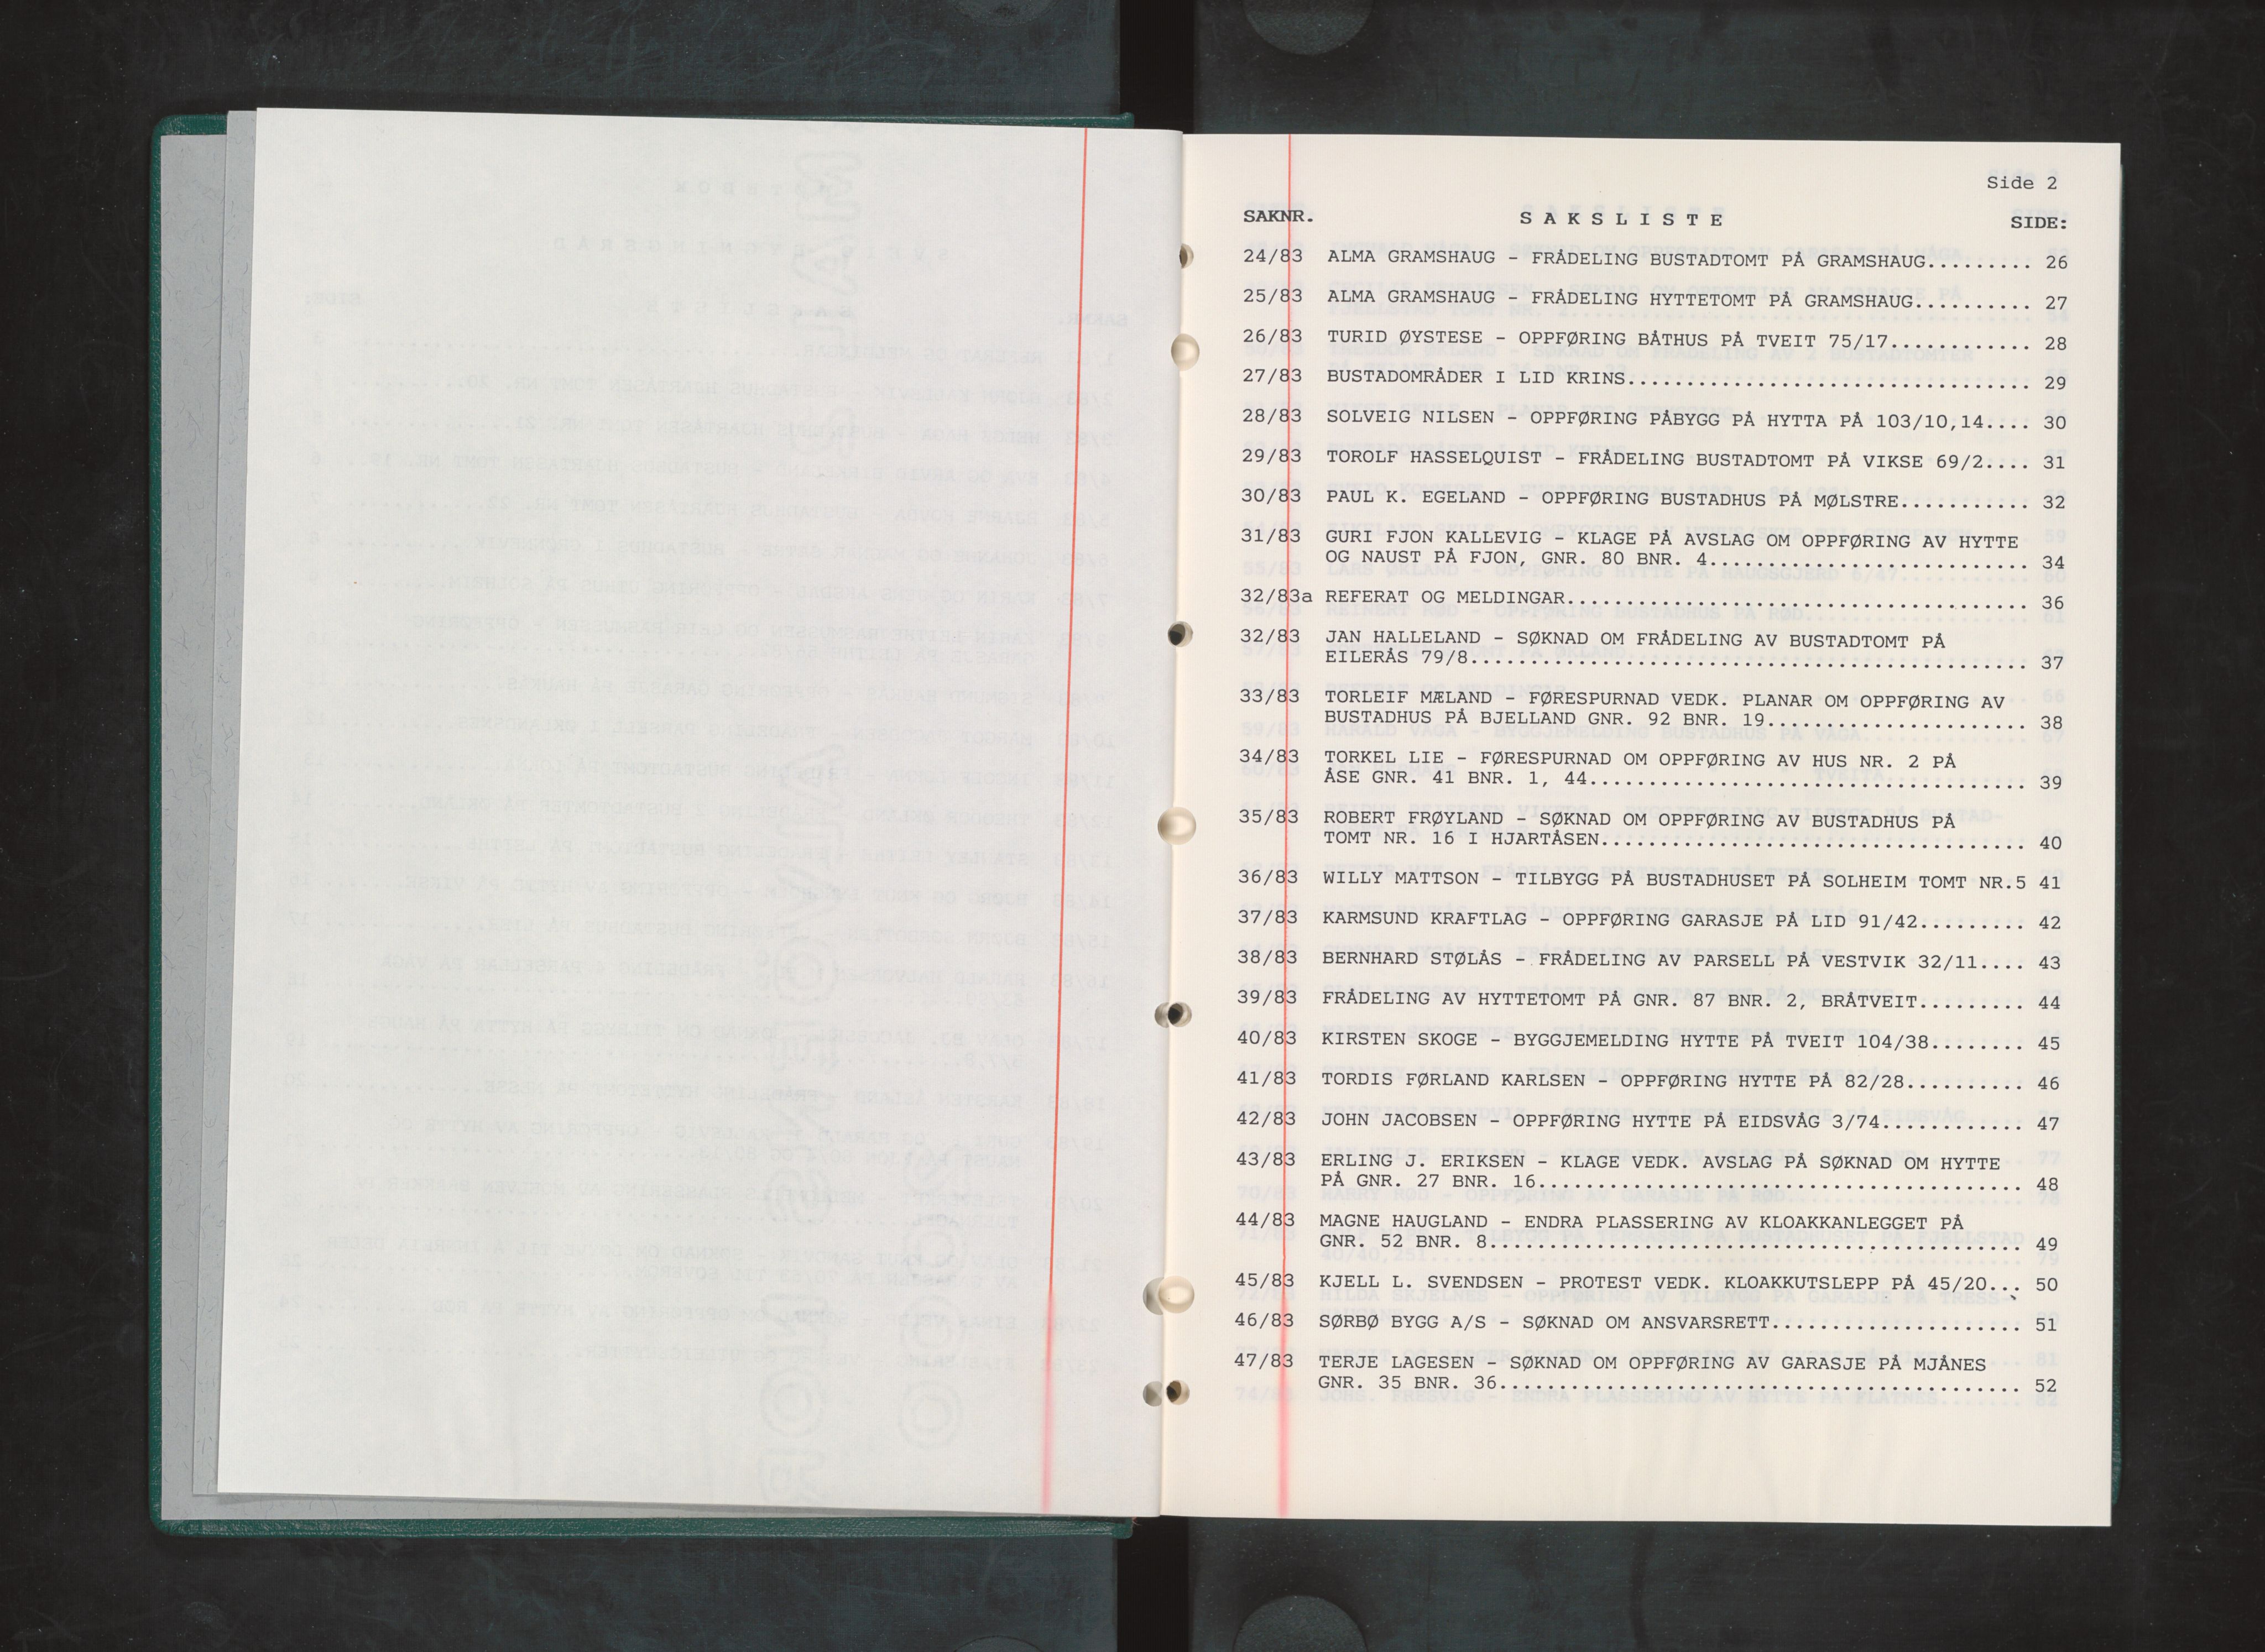 Side 2
SAKNR. S A K S L I S T E SIDE:
24/83 ALMA GRAMSHAUG - FRÅDELING BUSTADTOMT PÅ GRAMSHAUG......... 26
25/83 ALMA GRAMSHAUG - FRÅDELING HYTTETOMT PÅ GRAMSHAUG.......... 27
26/83 TURID ØYSTESE - OPPFØRING BÅTHUS PÅ TVEIT 75/17............ 28
27/83 BUSTADOMRÅDER I LID KRINS.................................. 29
28/83 SOLVEIG NILSEN - OPPFØRING PÅBYGG PÅ HYTTA PÅ 103/10,14.... 30
29/83 TOROLF HASSELQUIST - FRÅDELING BUSTADTOMT PÅ VIKSE 69/2.... 31
30/83 PAUL K. EGELAND - OPPFØRING BUSTADHUS PÅ MØLSTRE........... 32
31/83 GURI FJON KALLEVIG - KLAGE PÅ AVSLAG OM OPPFØRING AV HYTTE
OG NAUST PÅ FJON, GNR. 80 BNR. 4........................... 34
32/83a REFERAT OG MELDINGAR....................................... 36
32/83 JAN HALLELAND - SØKNAD OM FRÅDELING AV BUSTADTOMT PÅ
EILERÅS 79/8............................................... 37
33/83 TORLEIF MÆLAND - FØRESPURNAD VEDK. PLANAR OM OPPFØRING AV
BUSTADHUS PÅ BJELLAND GNR. 92 BNR. 19...................... 38
34/83 TORKEL LIE - FØRESPURNAD OM OPPFØRING AV HUS NR. 2 PÅ
ÅSE GNR. 41 BNR. 1, 44..................................... 39
35/83 ROBERT FRØYLAND - SØKNAD OM OPPFØRING AV BUSTADHUS PÅ
TOMT NR. 16 I HJARTÅSEN.................................... 40
36/83 WILLY MATTSON - TILBYGG PÅ BUSTADHUSET PÅ SOLHEIM TOMT NR.5 41
37/83 KARMSUND KRAFTLAG - OPPFØRING GARASJE PÅ LID 91/42......... 42
38/83 BERNHARD STØLÅS - FRÅDELING AV PARSELL PÅ VESTVIK 32/11.... 43
39/83 FRÅDELING AV HYTTETOMT PÅ GNR. 87 BNR. 2, BRÅTVEIT......... 44
40/83 KIRSTEN SKOGE - BYGGJEMELDING HYTTE PÅ TVEIT 104/38........ 45
41/83 TORDIS FØRLAND KARLSEN - OPPFØRING HYTTE PÅ 82/28.......... 46
42/83 JOHN JACOBSEN - OPPFØRING HYTTE PÅ EIDSVÅG 3/74............ 47
43/83 ERLING J. ERIKSEN - KLAGE VEDK. AVSLAG PÅ SØKNAD OM HYTTE
PÅ GNR. 27 BNR. 16......................................... 48
44/83 MAGNE HAUGLAND - ENDRA PLASSERING AV KLOAKKANLEGGET PÅ
GNR. 52 BNR. 8............................................. 49
45/83 KJELL L. SVENDSEN - PROTEST VEDK. KLOAKKUTSLEPP PÅ 45/20... 50
46/83 SØRBØ BYGG A/S - SØKNAD OM ANSVARSRETT..................... 51
47/83 TERJE LAGESEN - SØKNAD OM OPPFØRING AV GARASJE PÅ MJÅNES
GNR. 35 BNR. 36............................................ 52